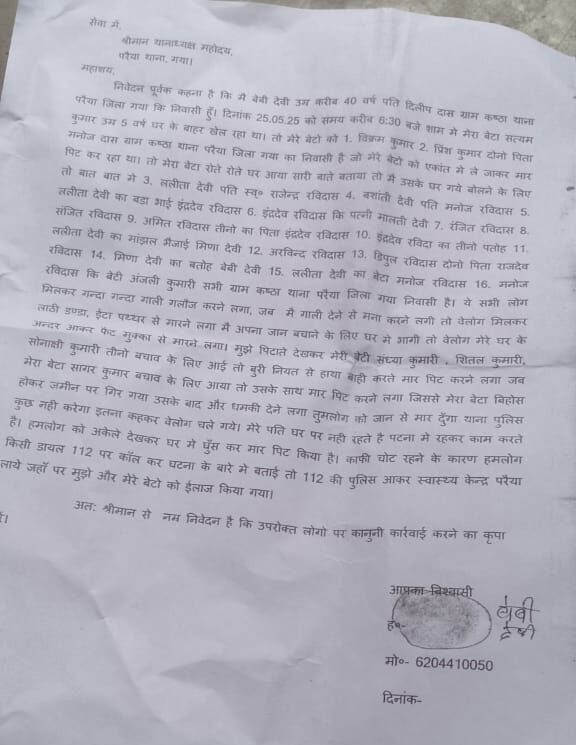 सेवा में,
श्रीमान थानाध्यक्ष महोदय,
परैया थाना, गया।
महाशय,
निवेदन पूर्वक कहना है कि मै बेबी देवी उम्र करीब 40 वर्ष पति दिलीप दास ग्राम कष्ठा थाना
परैया जिला गया कि निवासी हुँ। दिनांक 25.05.25 को समय करीब 6:30 बजे शाम मे मेरा बेटा सत्यम
कुमार उम्र 5 वर्ष घर के बाहर खेल रहा था। तो मेरे बेटो को 1. विक्रम कुमार 2. प्रिंश कुमार दोनो पिता
मनोज दास ग्राम कष्ठा थाना परैया जिला गया का निवासी है जो मेरे बेटो को एकांत मे ले जाकर मार
पिट कर रहा था। तो मेरा बेटा रोते रोते घर आया सारी बाते बताया तो मै उसके घर गये बोलने के लिए
तो बात बात मे 3. ललीता देवी पति स्व० राजेन्द्र रविदास 4. बशांती देवी पति मनोज रविदास 5.
ललीता देवी का बडा भाई इंद्रदेव रविदास 6. इंद्रदेव रविदास कि पत्नी मालती देवी 7. रंजित रविदास 8.
संजित रविदास 9. अमित रविदास तीनो का पिता इंद्रदेव रविदास 10. इंद्रदेव रविदा का तीनो पतोह 11.
ललीता देवी का मांझल भैजाई मिणा देवी 12. अरविन्द रविदास 13. डिपुल रविदास दोनो पिता राजदेव
रविदास 14. मिणा देवी का बतोह बेबी देवी 15. ललीता देवी का बेटा मनोज रविदास 16. मनोज
रविदास कि बेटी अंजली कुमारी सभी ग्राम कष्ठा थाना परैया जिला गया निवासी है। ये सभी लोग
मिलकर गन्दा गन्दा गाली गलौज करने लगा, जब मै गाली देने से मना करने लगी तो वेलोग मिलकर
लाठी डण्डा, ईटा पथ्थर से मारने लगा मै अपना जान बचाने के लिए घर मे भागी तो वेलोग मेरे घर के
अन्दर आकर फेट मुक्का से मारने लगा। मुझे पिटाते देखकर मेरी बेटी संध्या कुमारी , शितल कुमारी,
सोनाक्षी कुमारी तीनो बचाव के लिए आई तो बुरी नियत से हाथा बाही करते मार पिट करने लगा जब
मेरा बेटा सागर कुमार बचाव के लिए आया तो उसके साथ मार पिट करने लगा जिससे मेरा बेटा बिहोस
होकर जमीन पर गिर गया उसके बाद और धमकी देने लगा तुमलोग को जान से मार दुँगा थाना पुलिस
कुछ नही करेगा इतना कहकर वेलोग चले गये। मेरे पति घर पर नही रहते है पटना मे रहकर काम करते
है। हमलोग को अकेले देखकर घर मे घुँस कर मार पिट किया है। काफी चोट रहने के कारण हमलोग
किसी डायल 112 पर कॉल कर घटना के बारे मे बताई तो 112 की पुलिस आकर स्वास्थ्य केन्द्र परैया
लाये जहाँ पर मुझे और मेरे बेटो को ईलाज किया गया।
अतः श्रीमान से नम्र निवेदन है कि उपरोक्त लोगो पर कानुनी कार्रवाई करने का कृपा
आपका विश्वासी
ह०-
बेबी
देवी
मो०- 6204410050
दिनांक-